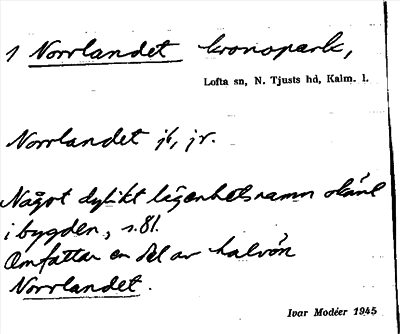 1 Norrlandet kronopark,
Lofta sn, N. Tjusts hd, Kalm. l.
Norrlandet jb, jr.
Något dylikt lägenhetsnamn okänt
i bygden, s. 81.
Omfattar en del av halvön
Norrlandet.
Ivar Modéer 1945